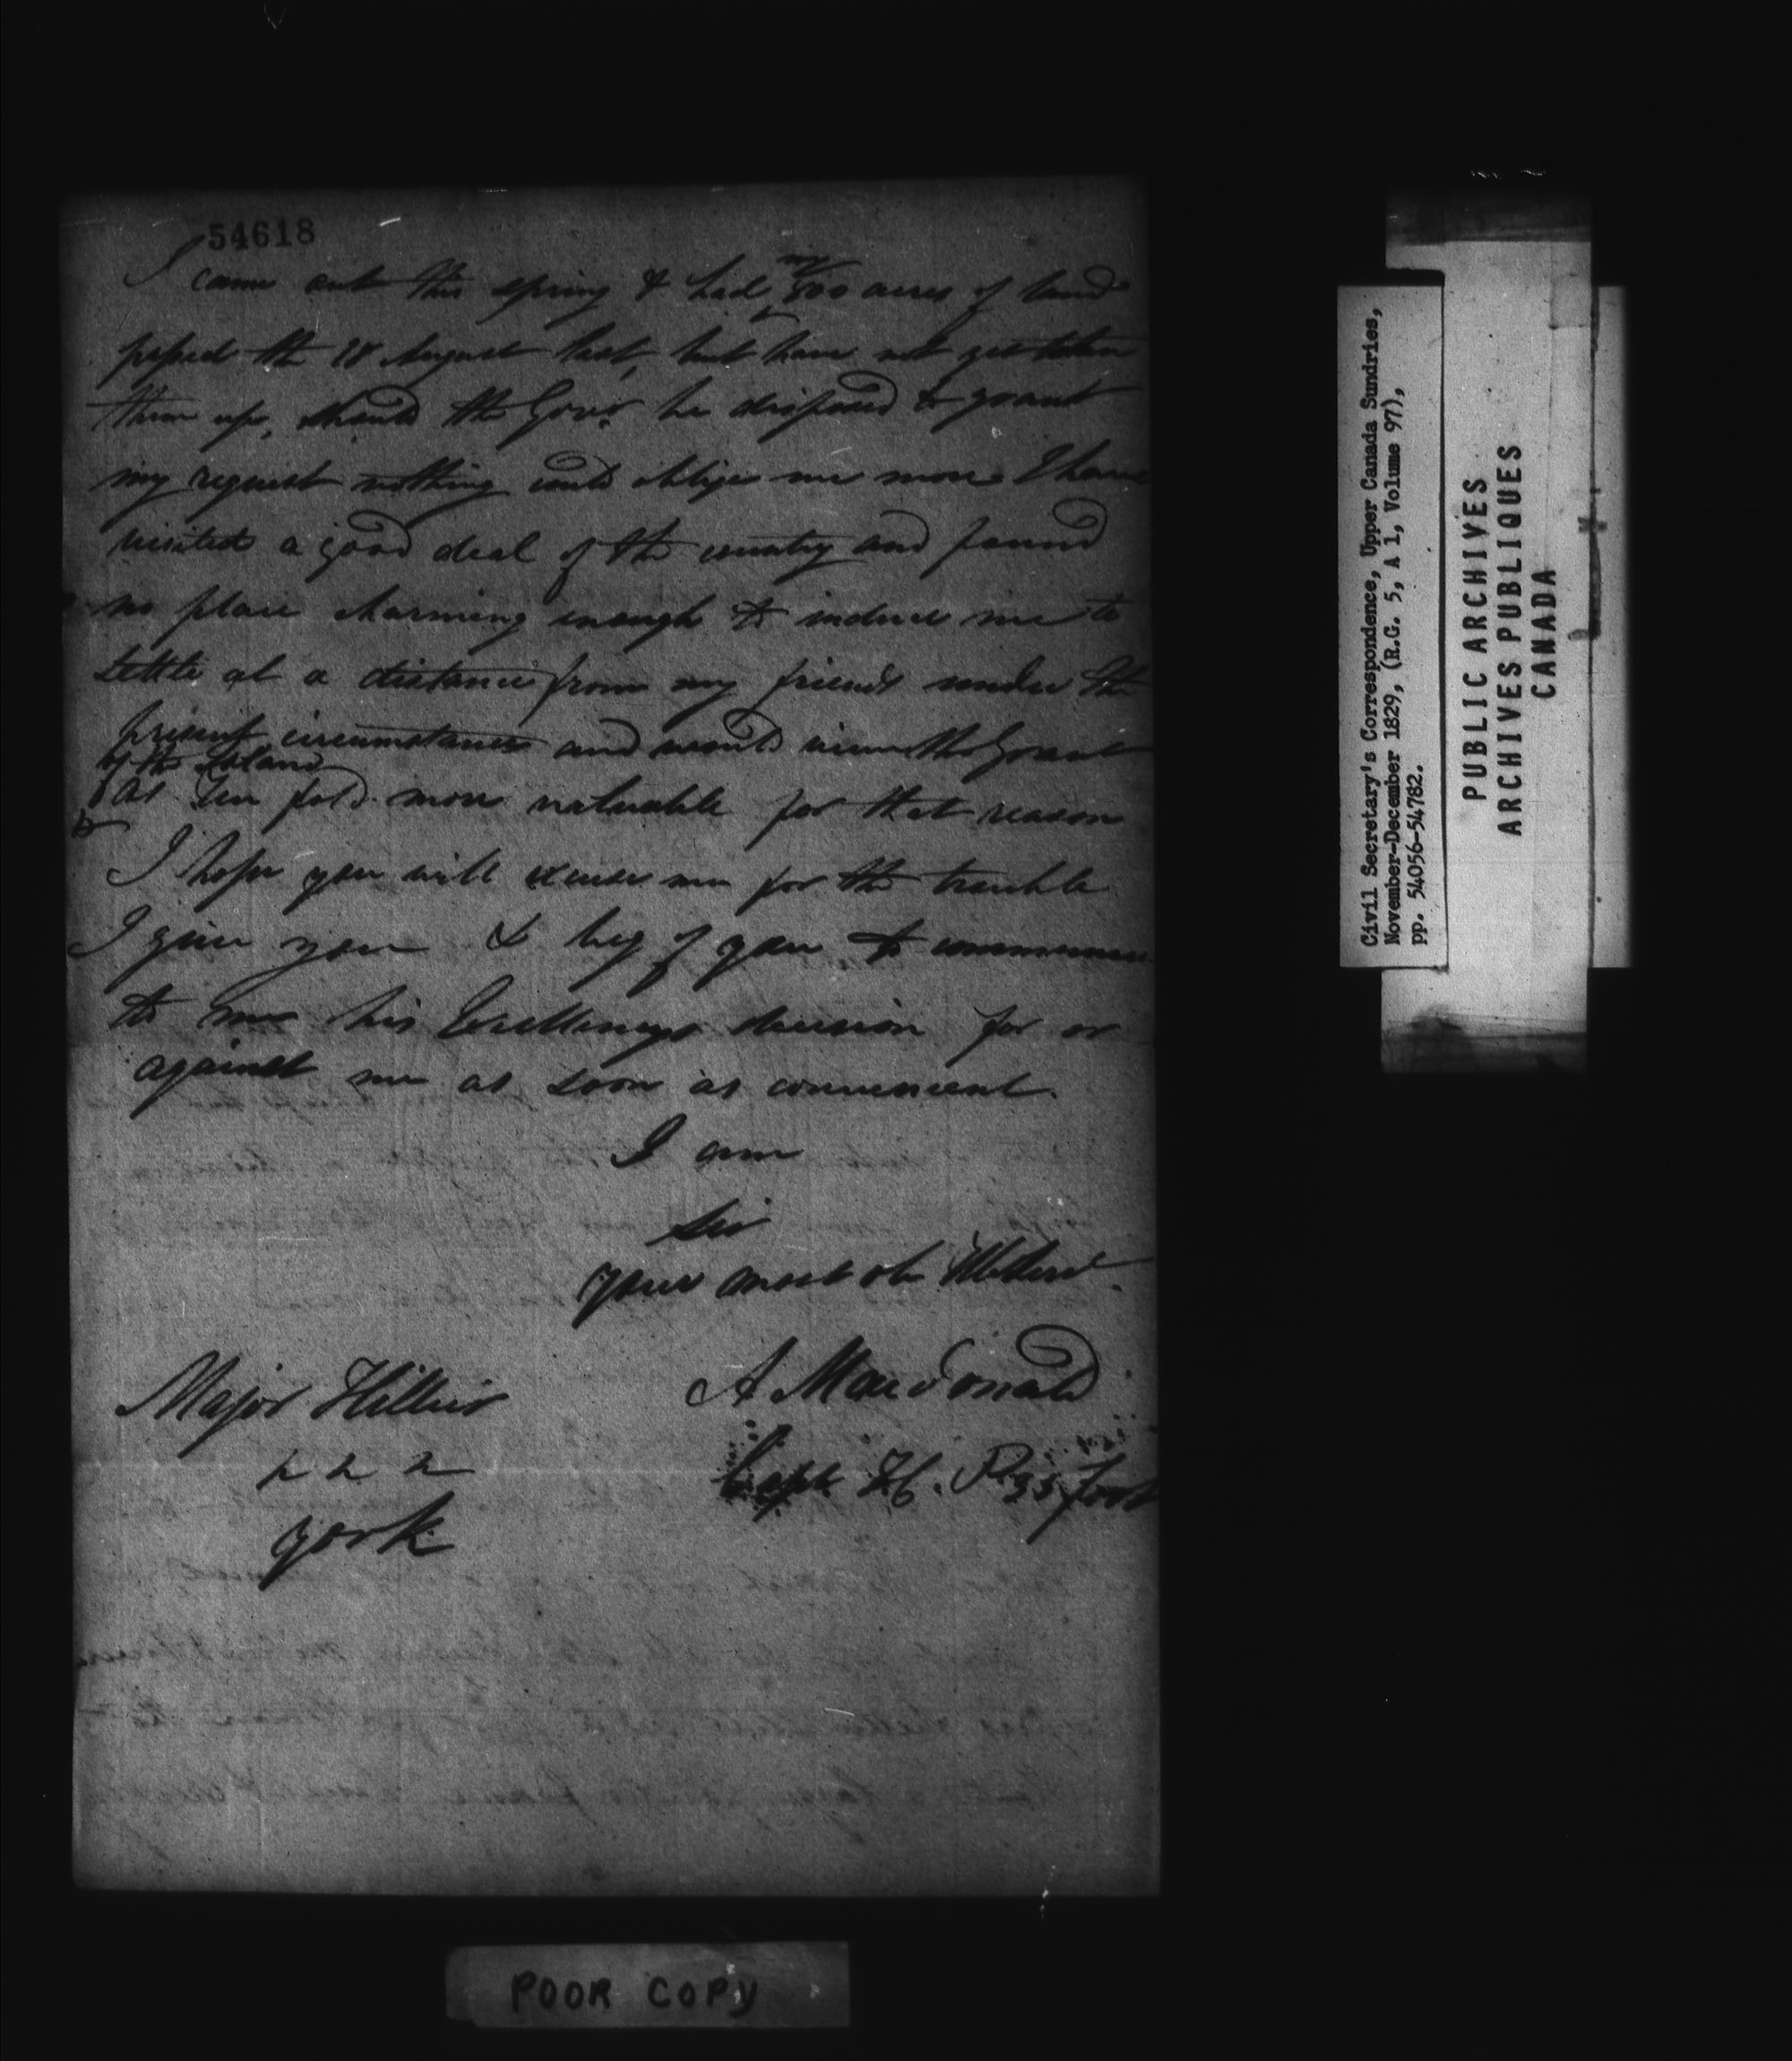 54618
I came out this spring & had my 800 acres of land
passed the 18 August last, but have not yet taken
them up, should the Govr. be disposed to grant
my request nothing could oblige me more I have
visited a good deal of the country and found
no place charming enough to induce me to
settle at a distance from my friends under the
present circumstances and would view the Grant
of the Island
as ten fold more valuable for that reason
I hope you will excuse me for the trouble
I give you & beg of you to
to me his Excellencys decision for or
against me as soon as convenient.
I am
Sir
your most ob
Major Hillier
A MacDonald
Capt H. P. 35 Foot
York
Civil Secretary's Correspondence, Upper Canada Sundries,
November-December 1829, (R.G. 5, A 1, Volume 97),
pp. 54056-54782.
PUBLIC ARCHIVES
ARCHIVES PUBLIQUES
CANADA
POOR COPY